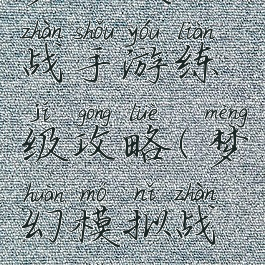 zhàn shǒu yóu liàn
战手游练
jí gōng lüè mèng
级攻略(梦
huàn mó nǐ zhàn
幻模拟战